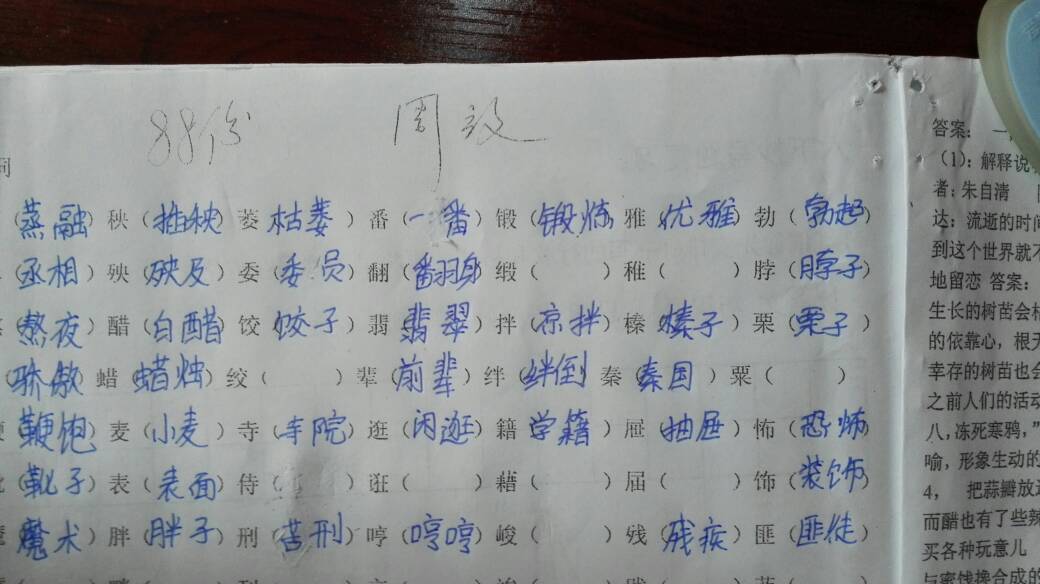 88份 周
词
（蒸融）秧（推秧）菱 枯萎）番（一番）锻（锻炼 雅 优雅）勃（勃起）
丞相）殃（殃及）委（委员 翻（翻身 缎（ ）稚（ ）脖（脖子）
（熬夜）醋（白醋）饺（饺子）翡 翡翠）拌（凉拌）榛（榛子）栗（栗子）
（骄傲）蜡（蜡烛）绞（ ）辈（前辈）绊（绊倒 秦（秦国）粟（ ）
鞭炮）麦（小麦）寺（寺院）逛（闲逛）籍 学籍）屉（抽屉）怖（恐怖）
（靴子）表（表面）侍（ ）诳（ ）藉（ ）届（ ）饰（装饰）
魔术）胖（胖子）刑（苦刑）哼（哼哼）峻（ ）残（残疾）匪（匪徒）
答案： 一
（1）：解释说
者：朱自清
达：流逝的时间
到这个世界就不
地留恋 答案：
生长的树苗会
的依靠心，根
幸存的树苗也会
之前人们的活动
八，冻死寒鸦，”
喻，形象生动的
4， 把蒜瓣放
而醋也有了些辣
买各种玩意儿
与蜜饯搀合成的